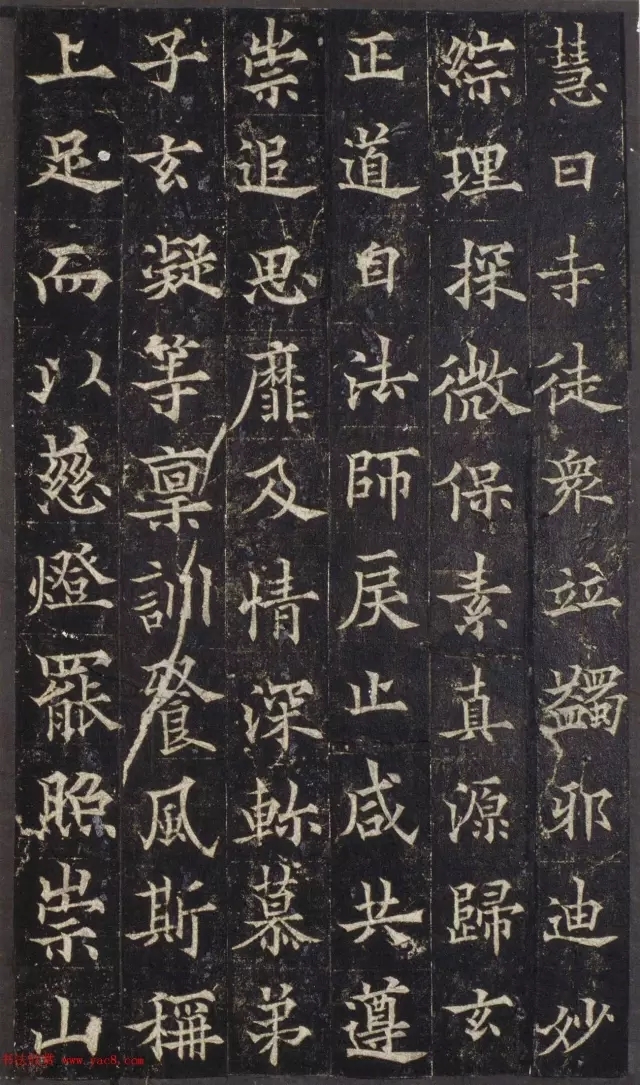 慧日寺徒衆竝蠲邪迪妙
綜理探微保素真源歸玄
正道自法師戾止咸共遵
崇追思靡及情深軫慕弟
子玄凝等稟訓餐風斯稱
上足而以慈燈罷照崇山
书法欣赏 www.yac8.com